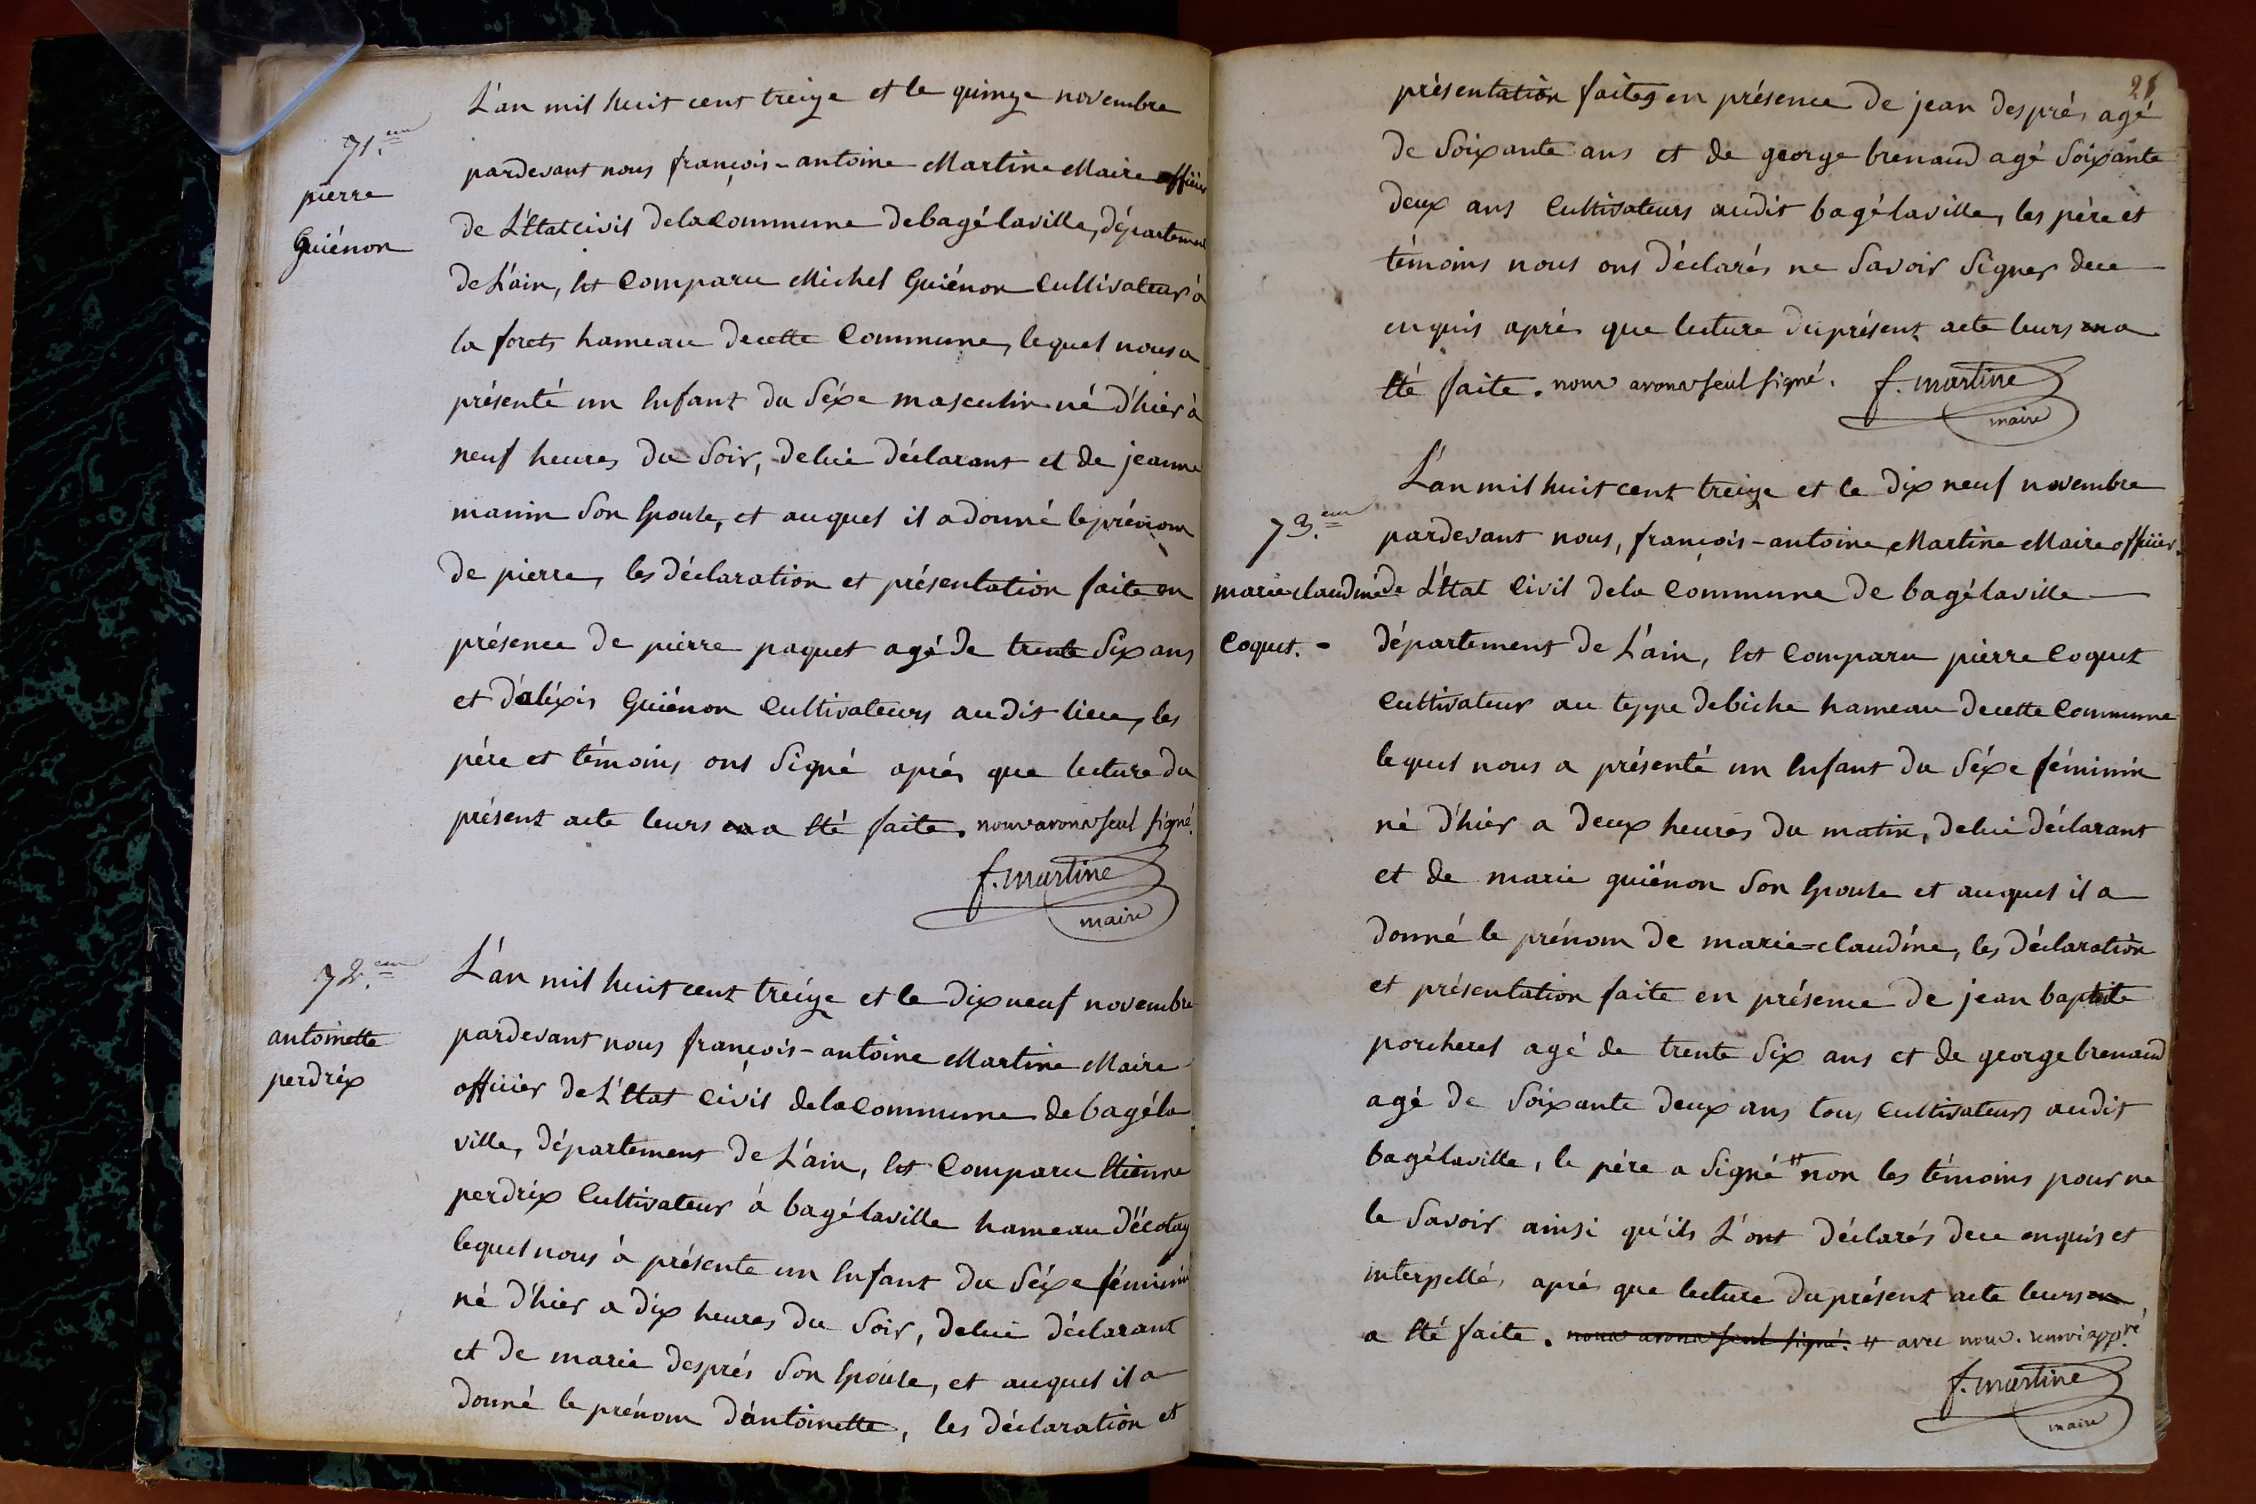 71.em
pierre
Guiénon
L'an mil huit cent treize et le quinze novembre
pardevant nous françois-antoine Martine Maire officier
de L'Etat civil de la Commune de bagé laville, département
de L'ain, Est Comparu Michel Guiénon Cultivateur à
la forets hameau de cette Commune, lequel nous a
présenté un Enfant du Séxe masculin né d'hier à
neuf heures du Soir, de lui déclarant et de jeanne
manin Son Epouse, et auquel il a donné le prénom
de pierre, les déclaration et présentation faite en
présence de pierre paquet agé de trente Six ans
et d'aléxis Guiénon Cultivateurs audit lieu, les
pére et témoins ont Signé aprés que lecture du
présent acte leurs en a Eté faite. nous avons seul signé.
f. martine
maire
72.em
antoinette
perdrix
L'an mil huit cent treize et le dix neuf novembre
pardevant nous françois-antoine Martine Maire
officier de L'Etat Civil de la Commune de bagé la
ville, département de L'ain, Est Comparu Etienne
perdrix Cultivateur à bagé laville hameau d'écotay
lequel nous à présente un Enfant du Séxe féminin
né d'hier a dix heures du Soir, de lui déclarant
et de marie després Son Epouse, et auquel il a
donné le prénom d'antoinette, les déclaration et
28
présentation faites en présence de jean després, agé
de Soixante ans et de george brenaud agé Soixante
deux ans Cultivateurs audit bagé laville, les pére et
témoins nous ont déclarés ne Savoir Signer de ce
enquis aprés que lecture du présent acte leurs en a
Eté faite. nous avons seul signé.
f. martine
maire
73.em
marie claudine
Coquet.
L'an mil huit cent treize et le dix neuf novembre
pardevant nous, françois-antoine Martine Maire officier
de L'Etat Civil de la Commune de bagé laville
département de L'ain, Est Comparu pierre Coquet
Cultivateur au teppe de biche hameau de cette Commune
lequel nous a présenté un Enfant du Séxe féminin
né d'hier a deux heures du matin, de lui déclarant
et de marie guiénon Son Epouse et auquel il a
donné le prénom de marie=claudine, les déclaration
et présentation faite en présence de jean baptiste
porcheret agé de trente Six ans et de george brenaud
agé de Soixante deux ans tous Cultivateurs audit
bagé laville, le pére a Signé # non les témoins pour ne
le Savoir ainsi qu'ils L'ont déclarés de ce enquis et
interpellés, aprés que lecture du présent acte leurs en
a Eté faite. nous avons seul signé. # avec nous. renvoi appré.
f. martine
maire